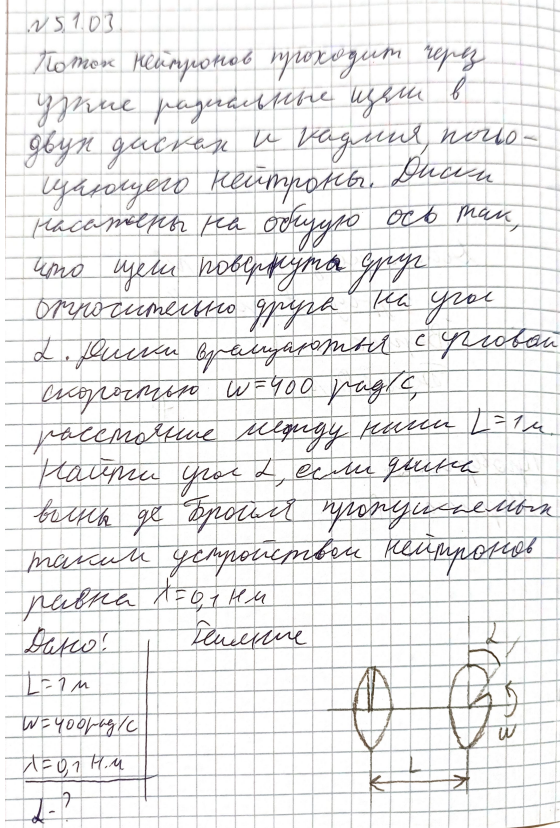 N 5.1.03.
Поток нейтронов проходит через
узкие радиальные щели в
двух дисках и кадмия, погло-
щающего нейтроны. Диски
насажены на общую ось так,
что щели повернуты друг
относительно друга на угол
α. Диски вращаются с угловой
скоростью w=400 рад/с,
расстояние между ними L=1м.
Найти угол α, если длина
волны де Бройля пропускаемых
таким устройством нейтронов
равна λ=0,1 нм
Дано: Решение
L=1м
w=400рад/с
λ=0,1 н.м
α-?
α
w
L